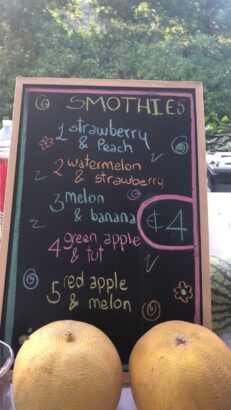 SMOTHIES
1 strawberry
& Peach
2 watermelon
& strawberry
3 melon
& banana
€4
4 green apple
& tut
5 red apple
& melon